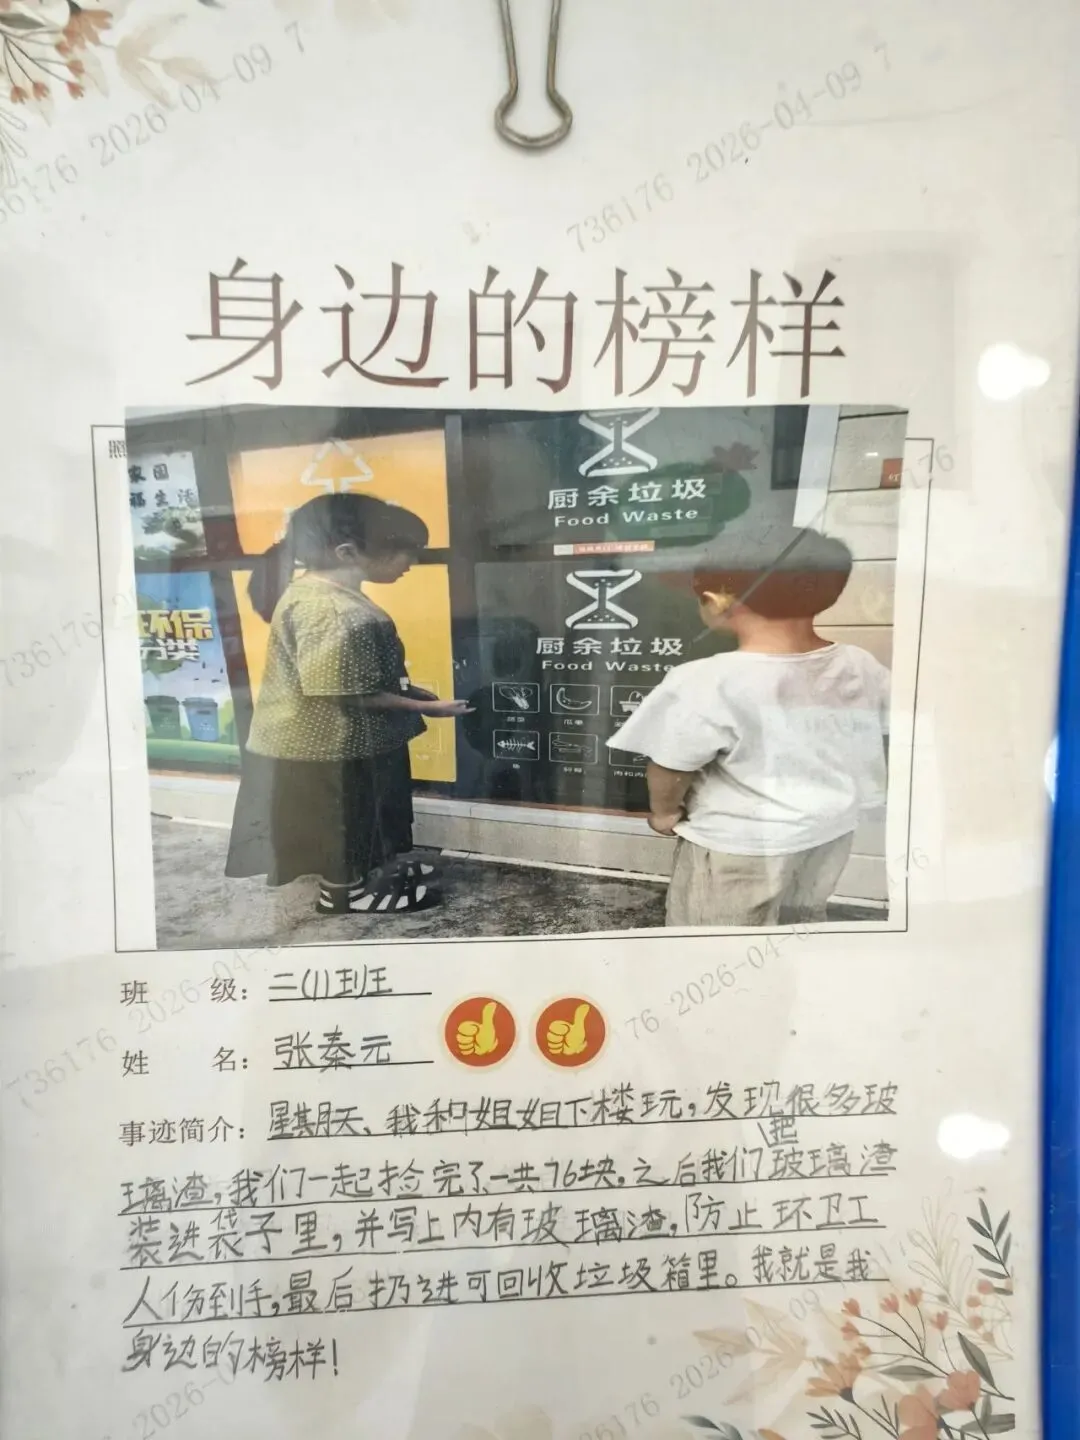 736176 2026-04-09 7
736176 2026-04-09 7
身边的榜样
照
家园
福生活
厨余垃圾
Food Waste
厨余垃圾
Food Waste
环保
分类
蔬菜
瓜果
鱼
班 级：二(1)班
姓 名：张秦元
事迹简介：星期天、我和姐姐下楼玩，发现很多玻
璃渣，我们一起捡完了、一共76块。之后我们把玻璃渣
装进袋子里，并写上内有玻璃渣，防止环卫工
人伤到手，最后扔进可回收垃圾箱里。我就是我
身边的榜样！